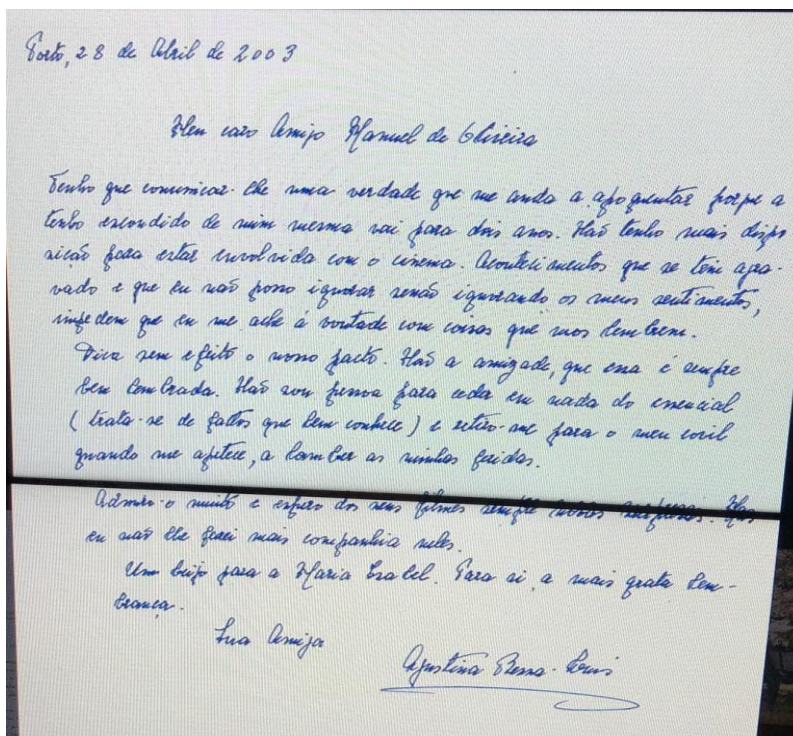 Porto, 28 de Abril de 2003
Meu caro Amigo Manuel de Oliveira
Tenho que comunicar-lhe uma verdade que me anda a apoquentar porque a
tenho escondido de mim mesma vai para dois anos. Não tenho mais dispo
sição para estar envolvida com o cinema. Acontecimentos que se têm agra-
vado e que eu não posso ignorar senão ignorando os meus sentimentos,
impedem que eu me ache à vontade com coisas que mos lembrem.
Fica sem efeito o nosso pacto. Não a amizade, que essa é sempre
bem lembrada. Não sou pessoa para ceder em nada do essencial
(trata-se de factos que bem conhece) e retiro-me para o meu covil
quando me apetece, a lamber as minhas feridas.
Admiro-o muito e espero dos seus filmes sempre novas surpresas. Mas
eu não lhe farei mais companhia neles.
Um beijo para a Maria Isabel. Para si, a mais grata lem-
brança.
Sua Amiga
Agustina Bessa-Luís